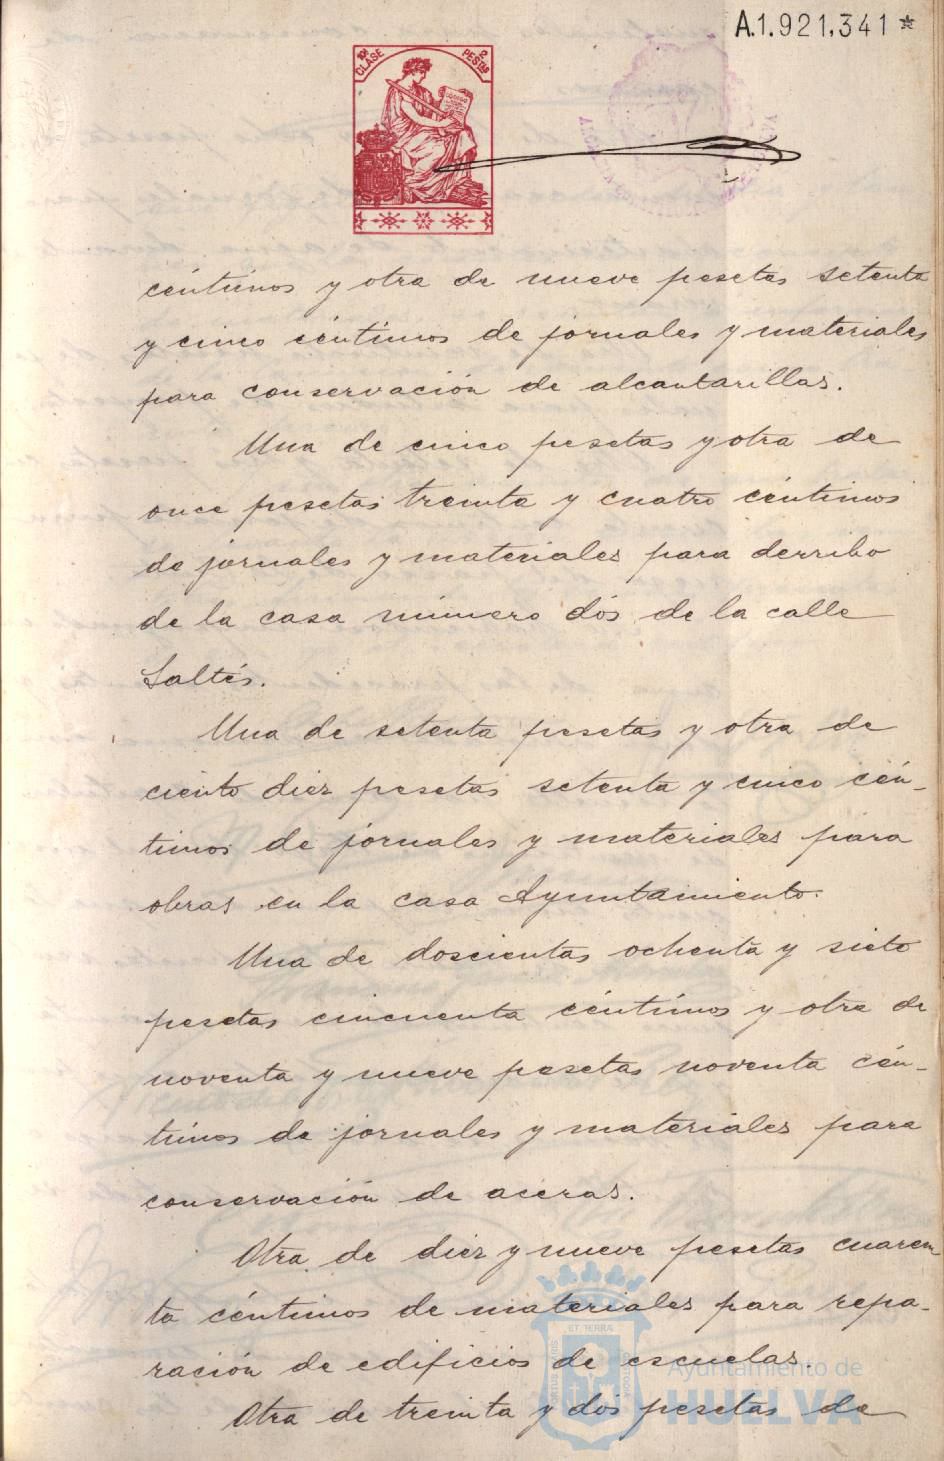 A.1.921,341 *
10ª CLASE
2 PESTAS
céntimos y otra de nueve pesetas setenta
y cinco céntimos de jornales y materiales
para conservación de alcantarillas.
Una de cinco pesetas y otra de
once pesetas treinta y cuatro céntimos
de jornales y materiales para derribo
de la casa número dós de la calle
Saltés.
Una de setenta pesetas y otra de
ciento diez pesetas setenta y cinco cén-
timos de jornales y materiales para
obras en la casa Ayuntamiento.
Una de doscientas ochenta y siete
pesetas cincuenta céntimos y otra de
noventa y nueve pesetas noventa cén-
timos de jornales y materiales para
conservación de aceras.
Otra de diez y nueve pesetas cuaren
ta céntimos de materiales para repa-
ración de edificios de escuelas.
Otra de treinta y dos pesetas de
Ayuntamiento de
HUELVA